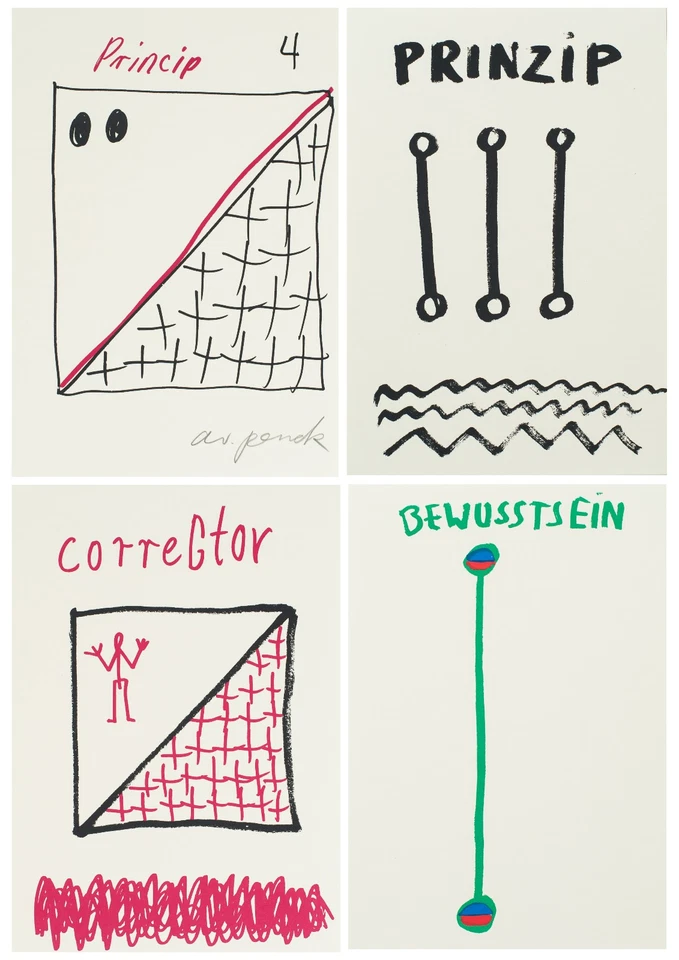 Princip 4
a.r. penck
PRINZiP
corrector
BEWUSSTSEiN